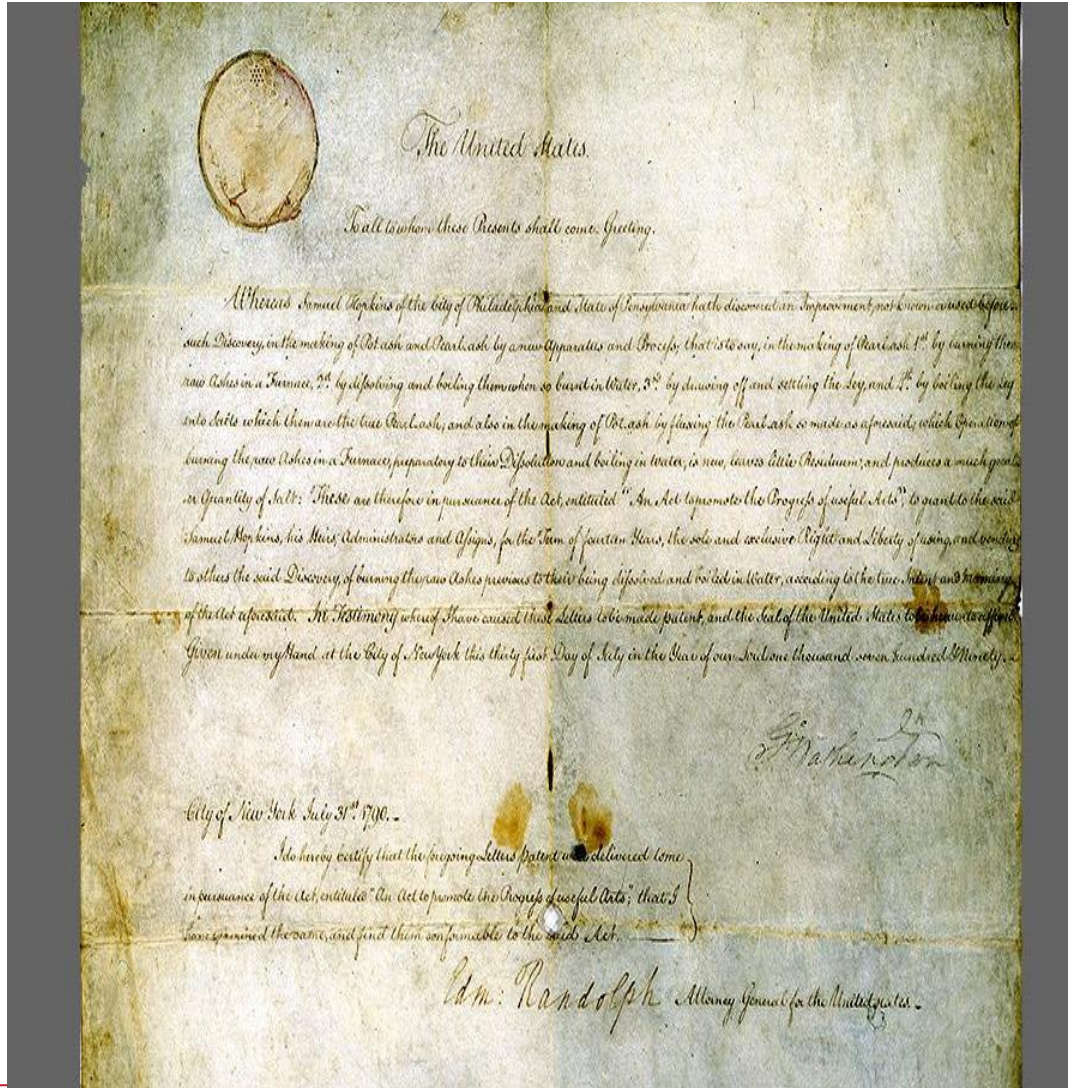 The United States.
To all to whom these Presents shall come. Greeting.
Whereas Samuel Hopkins of the City of Philadelphia and State of Pensylvania hath discovered an Improvement, not known or used before
such Discovery, in the making of Pot ash and Pearl ash by a new Apparatus and Process; that is to say, in the making of Pearl ash 1st. by burning the
raw Ashes in a Furnace, 2d. by dissolving and boiling them when so burnt in Water, 3rd. by drawing off and settling the Ley, and 4th. by boiling the Ley
into Salts which then are the true Pearl ash; and also in the making of Pot ash by fluxing the Pearl ash so made as aforesaid; which Operation of
burning the raw Ashes in a Furnace, preparatory to their Dissolution and boiling in Water, is new, leaves little Residuum; and produces a much great
er Quantity of Salt: These are therefore in pursuance of the Act, entituled "An Act to promote the Progress of useful Arts", to grant to the said
Samuel Hopkins, his Heirs, Administrators and Assigns, for the Term of fourteen Years, the sole and exclusive Right and Liberty of using, and vending
to others the said Discovery, of burning the raw Ashes previous to their being dissolved and boiled in Water, according to the true Intent and Meaning
of the Act aforesaid. In Testimony whereof I have caused these Letters to be made patent, and the Seal of the United States to be hereunto affixed
Given under my Hand at the City of New York this thirty first Day of July in the Year of our Lord one thousand seven hundred & Ninety.
G Washington
City of New York July 31st. 1790. -
I do hereby certify that the foregoing Letters patent were delivered to me
in pursuance of the Act, entituled "An Act to promote the Progress of useful Arts"; that I
have examined the same, and find them conformable to the said Act.
Edm: Randolph Attorney General for the United States. -